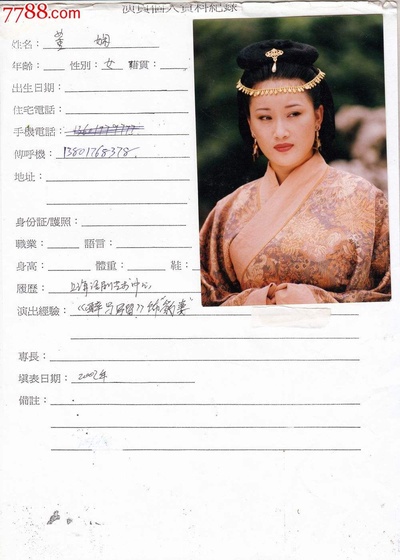 7788.com
演員個人資料紀錄
姓名：董娴
年齡： 性別：女 籍貫：
出生日期：
住宅電話：
手機電話：
傳呼機：13801768378
地址：
身份証/護照：
職業： 語言：
身高： 體重： 鞋：
履歷：
演出經驗：
專長：
填表日期：2002年
備註：